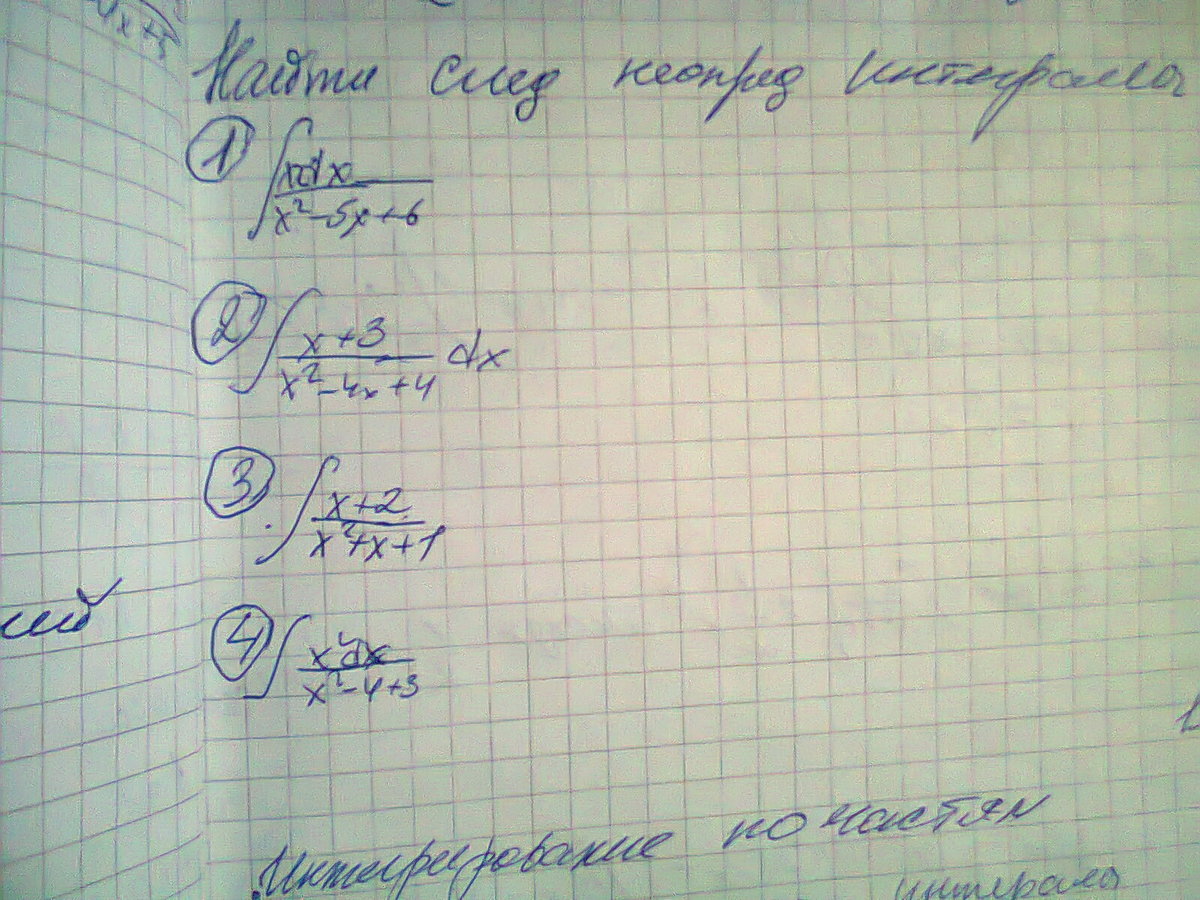 Найти след неопред интегралы
① ∫ xdx / x² - 5x + 6
② ∫ x + 3 / x² - 4x + 4 dx
③ ∫ x + 2 / x² + x + 1
④ ∫ x²dx / x² - 4 + 3
Интегрирование по частям
интегралы